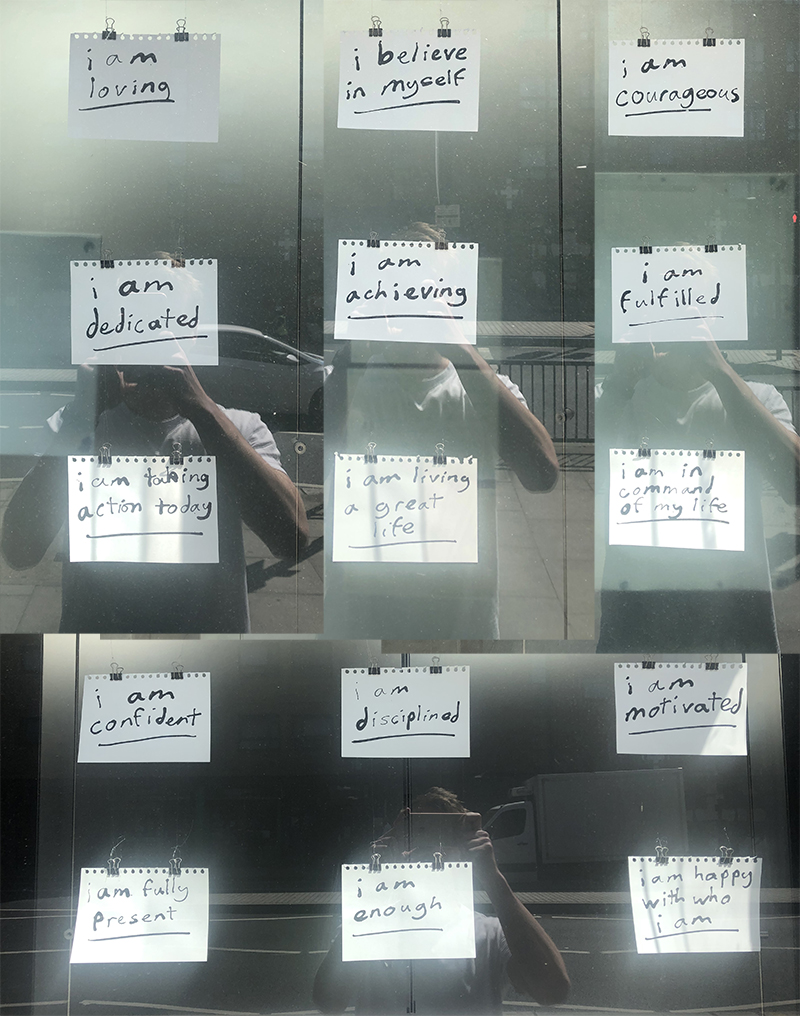 i am
loving
i believe
in myself
i am
courageous
i am
dedicated
i am
achieving
i am
fulfilled
i am taking
action today
i am living
a great
life
i am in
command
of my life
i am
confident
i am
disciplined
i am
motivated
i am fully
present
i am
enough
i am happy
with who
i am